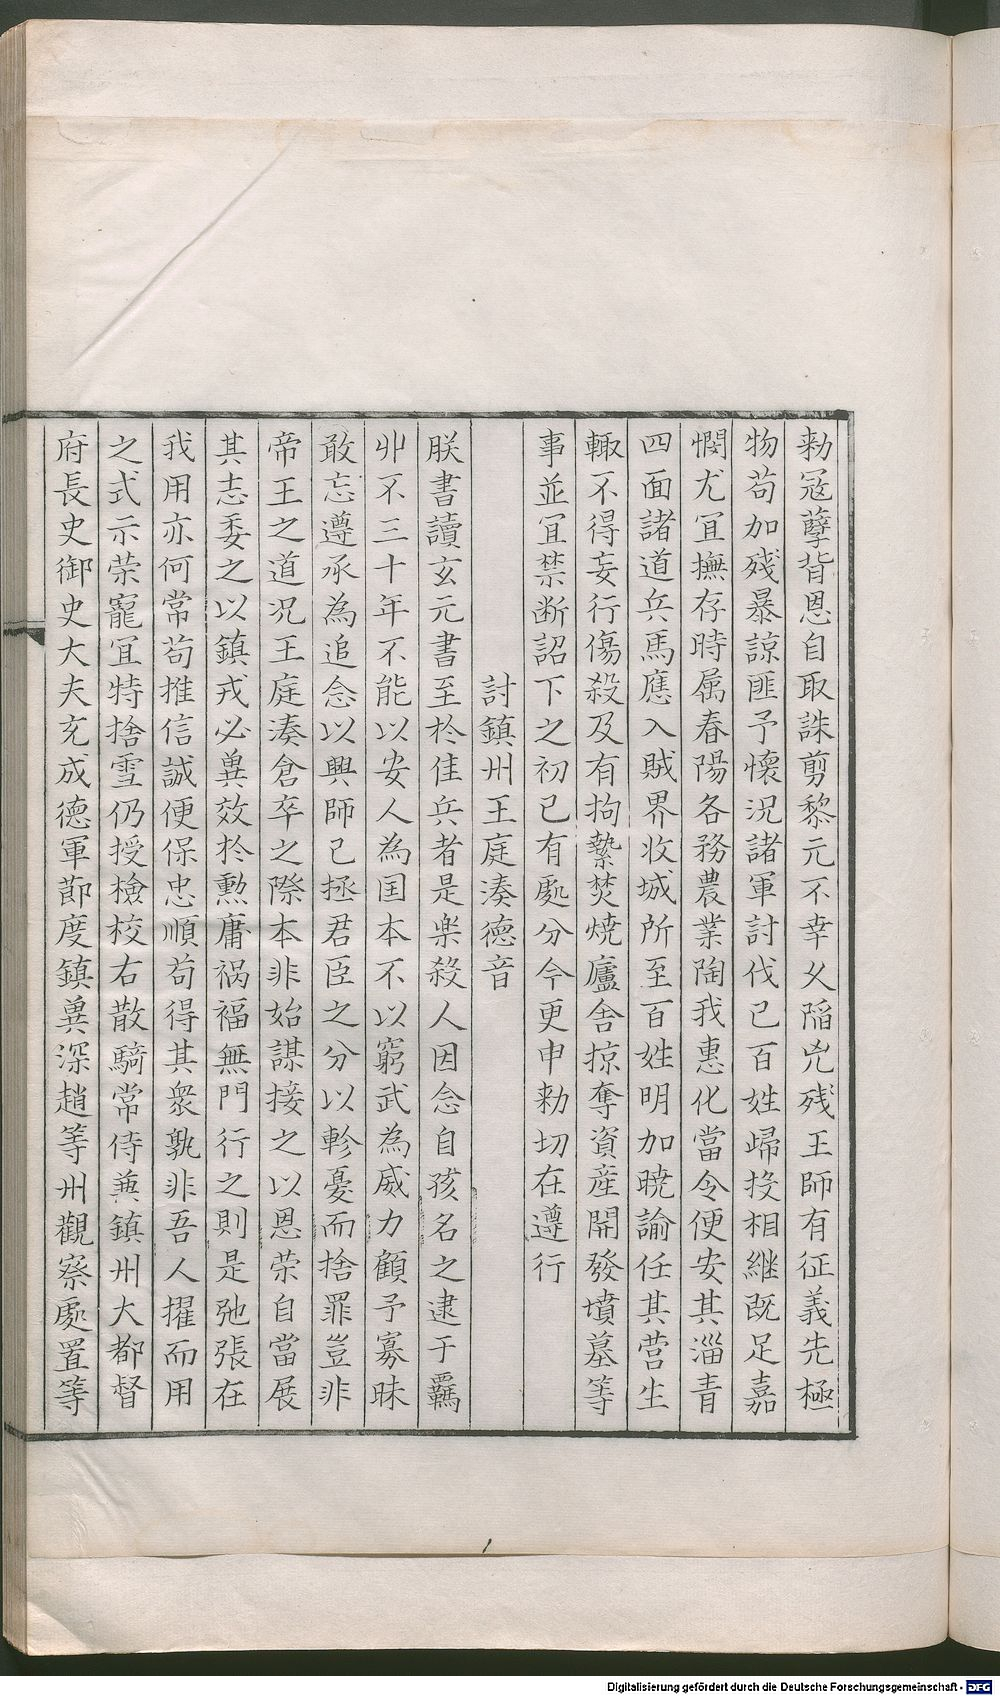 勑冦孽背恩自取誅剪黎元不幸乆陷兇残王師有征義先極
物苟加残暴諒匪予懷况諸軍討伐已百姓歸投相継既足嘉
憫尤宜撫存時属春陽各務農業陶我惠化當令便安其淄青
四面諸道兵馬應入賊界收城所至百姓明加曉諭任其营生
輙不得妄行傷殺及有拘縶焚燒廬舍掠奪資産開發墳墓等
事並宜禁断詔下之初已有處分今更申勑切在遵行
討鎮州王庭湊德音
朕書讀玄元書至於佳兵者是樂殺人因念自孩名之逮于羈
丱不三十年不能以安人為国本不以窮武為威力顧予寡昧
敢忘遵承為追念以興師己拯君臣之分以軫憂而捨罪豈非
帝王之道况王庭湊倉卒之際本非始謀接之以恩荣自當展
其志委之以鎮戎必兾效於勲庸禍福無門行之則是弛張在
我用亦何常苟推信誠便保忠順苟得其衆孰非吾人擢而用
之式示荣寵宜特捨雪仍授撿校右散騎常侍兼鎮州大都督
府長史御史大夫充成德軍莭度鎮兾深趙等州觀察處置等
Digitalisierung gefördert durch die Deutsche Forschungsgemeinschaft - DFG